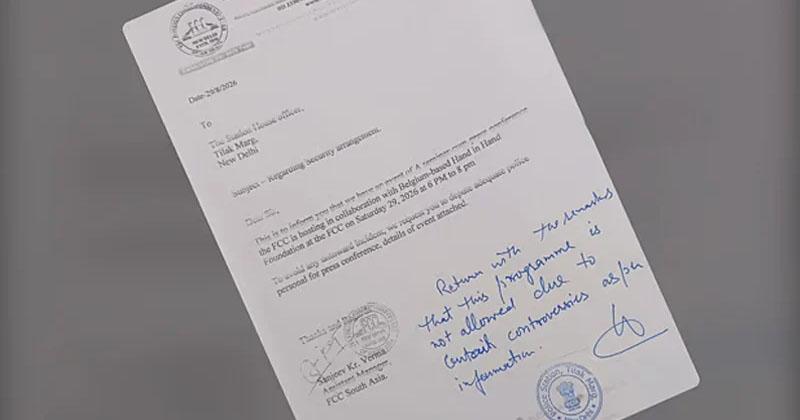 FCC
NEW DELHI
Date-29/8/2026
To
The Station House officer,
Tilak Marg,
New Delhi
Subject – Regarding Security arrangement.
Dear Sir,
This is to inform you that we have an event of A seminar cum press conference
the FCC is hosting in collaboration with Belgium-based Hand in Hand
Foundation at the FCC on Saturday 29, 2026 at 6 PM to 8 pm
To avoid any untoward incident, we request you to depute adequate police
personal for press conference, details of event attached.
Thanks and
Sanjeev Kr. Verma
Assistant Manager,
FCC South Asia.
Return with the remarks
that this programme is
not allowed due to
certain controversies as per
information.
Police Station, Tilak Marg,